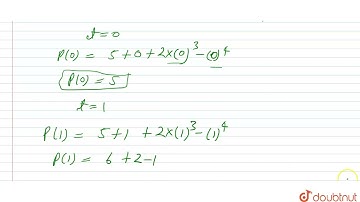 t=0
P(0) = 5+0+2×(0)³-(0)⁴
P(0) = 5
t=1
P(1) = 5+1 +2×(1)³-(1)⁴
P(1) = 6+2-1
doubtnut